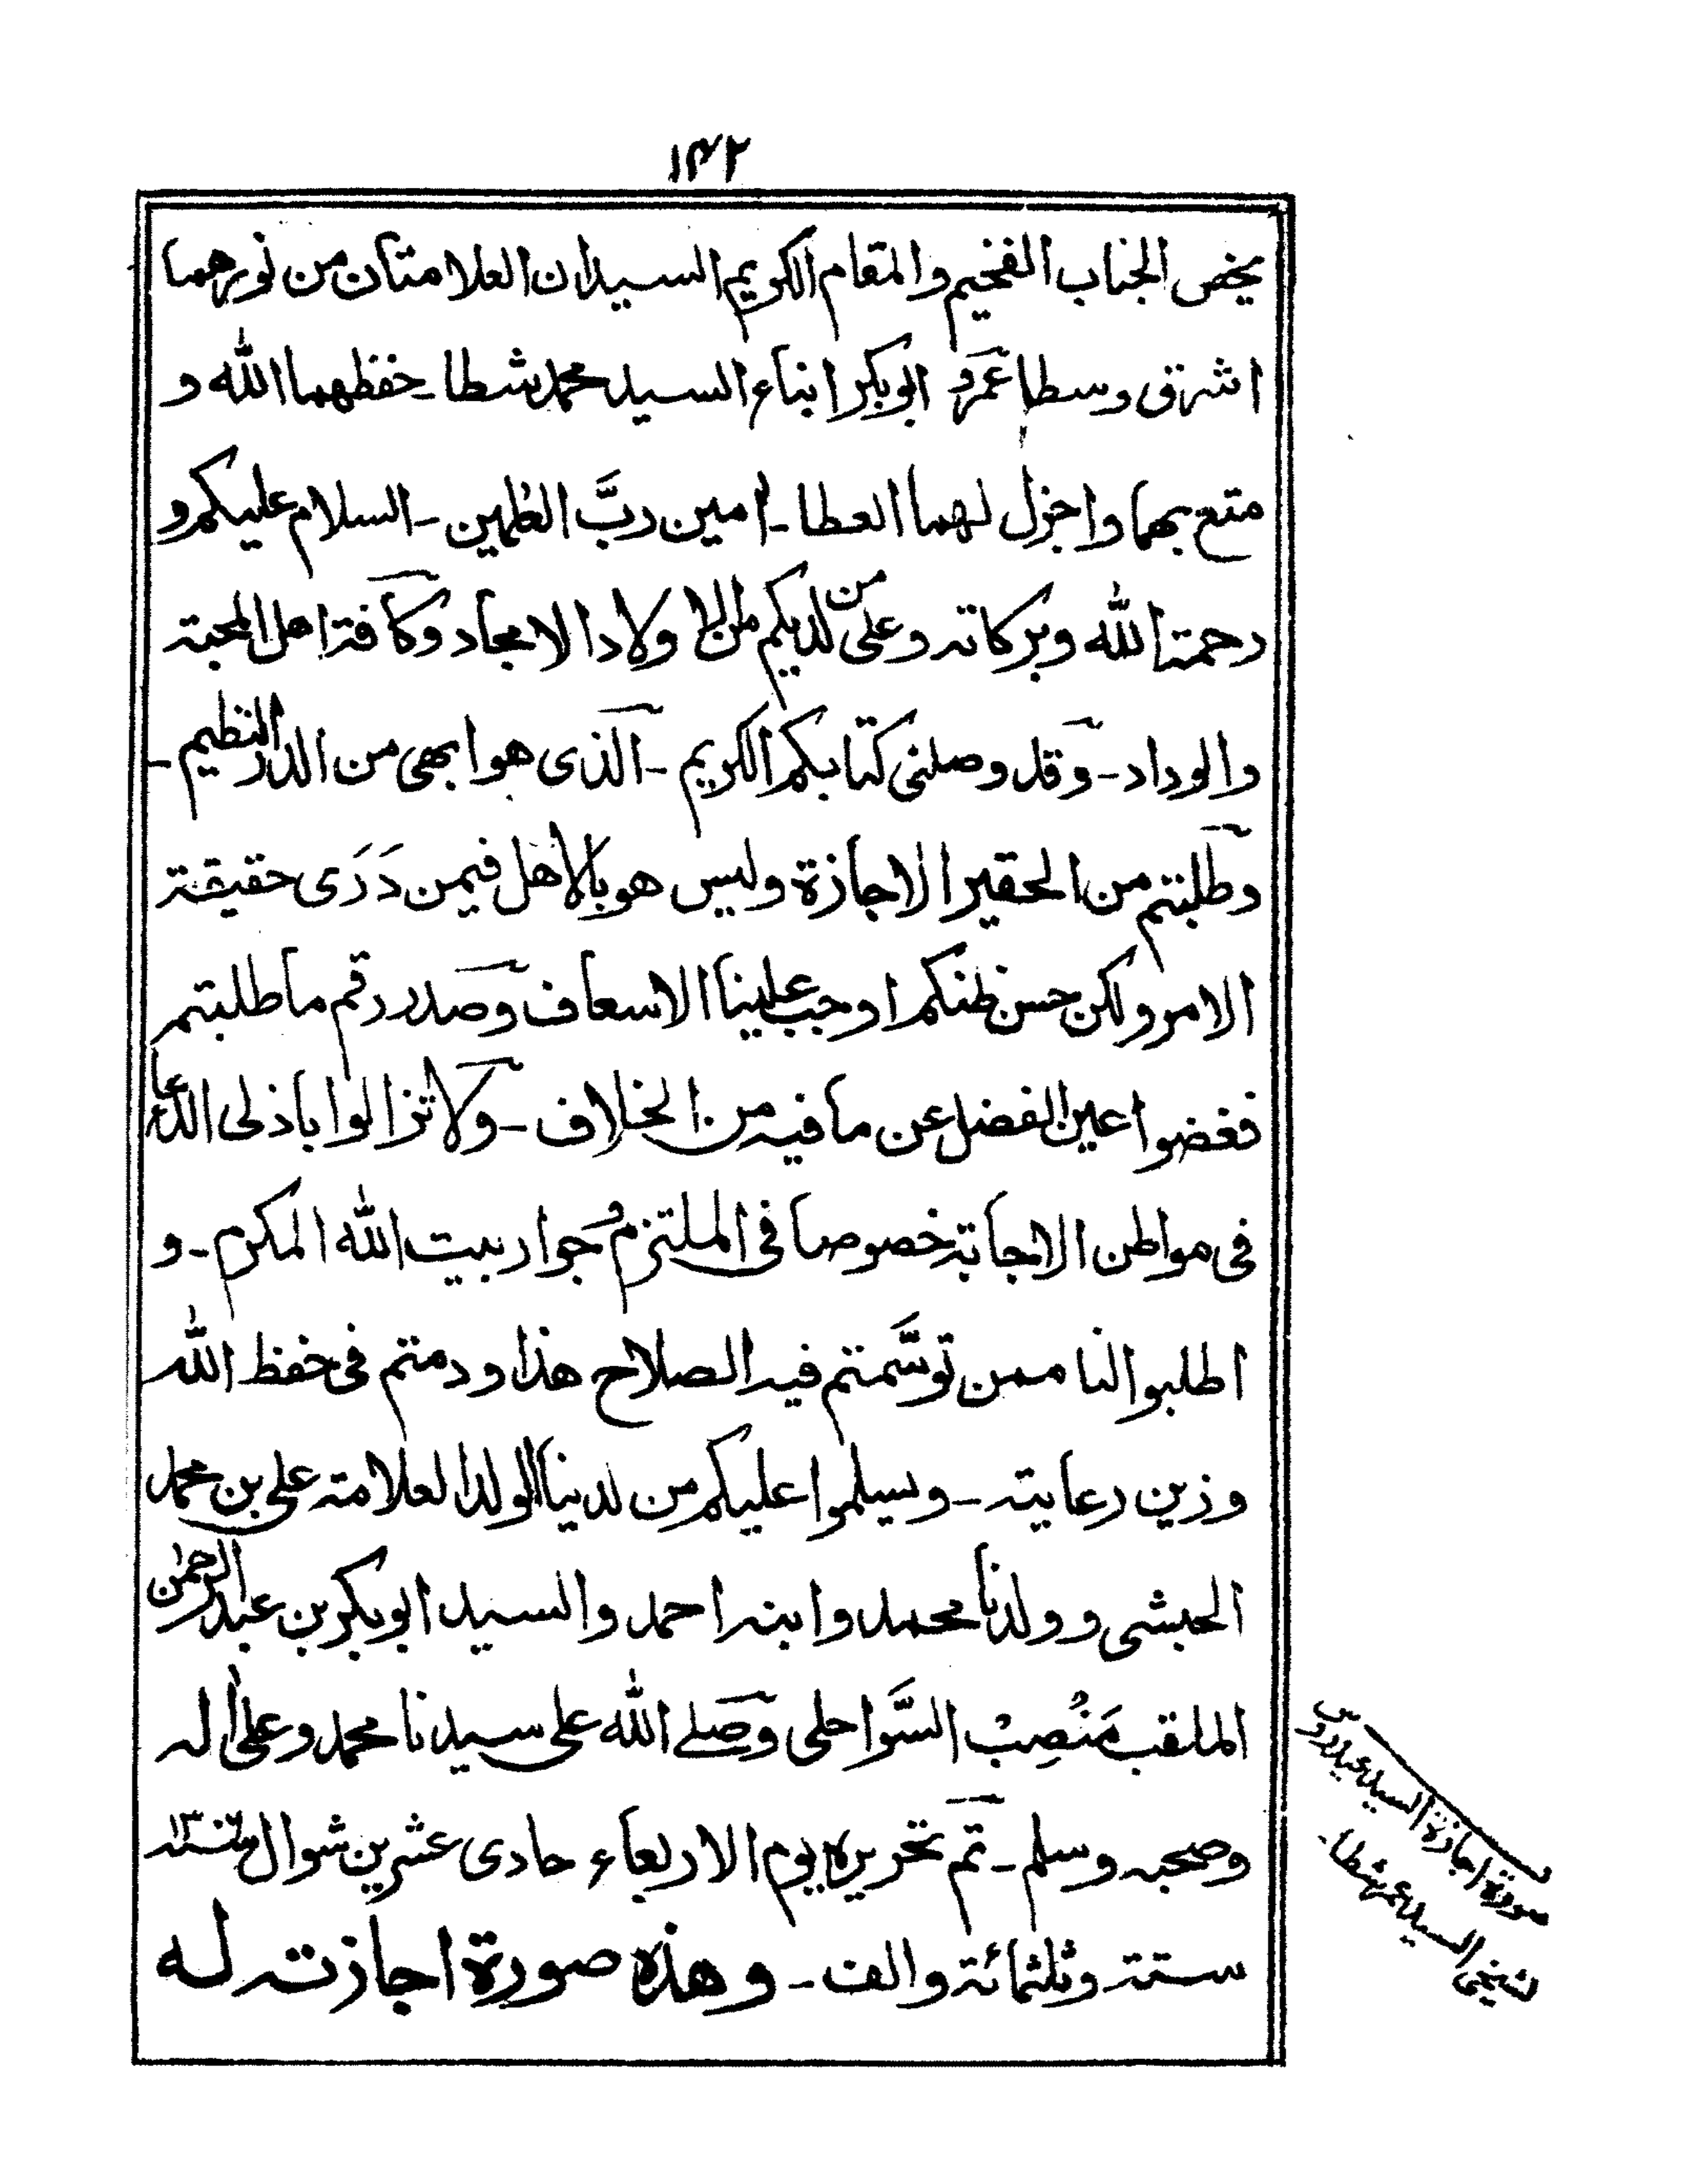 ١٤٢
يخص الجناب الفخيم والمقام الكريم السيدان العلامتان من نورهما
اشرق وسطا عمر و ابوبكر ابناء السيد محمد شطا - حفظهما الله و
متع بهما واجزل لهما العطا - اٰمين ربَّ العٰلمين - السلام عليكم و
رحمة الله وبركاته وعلى من لديكم من الاولاد الامجاد وكافة اهل المحبة
والوداد - وقد وصلنى كتابكم الكريم - الذى هو ابهى من الدر النظيم -
وطلبتم من الحقير الاجازة وليس هو بالاهل فيمن دَرَى حقيقة
الامر ولكن حسن ظنكم اوجب علينا الاسعاف وصدر رقم ما طلبتم
فغضوا عين الفضل عن ما فيه من الخلاف - ولا تزالوا باذلى الدعا
فى مواطن الاجابة خصوصا فى الملتزم وجوار بيت الله المكرم - و
اطلبوا لنا ممن توسَّمتم فيه الصلاح هذا ودمتم فى حفظ الله
وزين رعايته - ويسلموا عليكم من لدينا الولد العلامة على بن محمد
الحبشى و ولدنا محمد وابنه احمد والسيد ابوبكر بن عبد الرحمٰن
الملقب مَنْصِبْ السَّواحلى وصلے الله على سيدنا محمد وعلى اٰله
وصحبه وسلم - تم تحريره يوم الاربعاء حادى عشرين شوال
ستة وثلثمائة والف - وهذه صورة اجازته له
صورة اجازة السيد عيدروس
لشيخى السيد عمر شطا